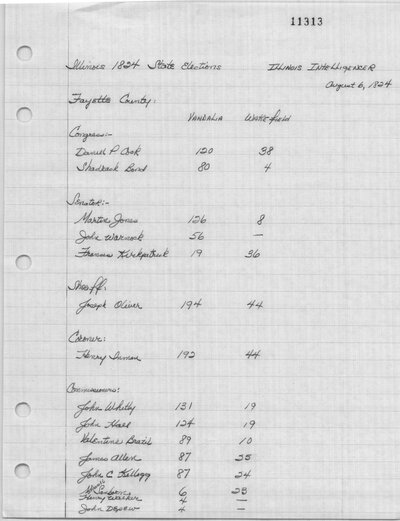 11313
Illinois 1824 State Elections Illinois Intelligencer
August 6, 1824
Fayette County:
Vandalia Wakefield
Congress:-
Daniel P Cook 120 38
Shadrack Bond 80 4
Senator:-
Martin Jones 126 8
John Warnock 56 —
Francis Kirkpatrick 19 36
Sheriff:
Joseph Oliver 194 44
Coroner:
Henry 192 44
Commissioners:
John Whitly 131 19
John Hall 124 19
Valentine Brazil 89 10
James Allen 87 25
John C Kellogg 87 24
6 23
Henry Walker 4 —
John Depew 4 —